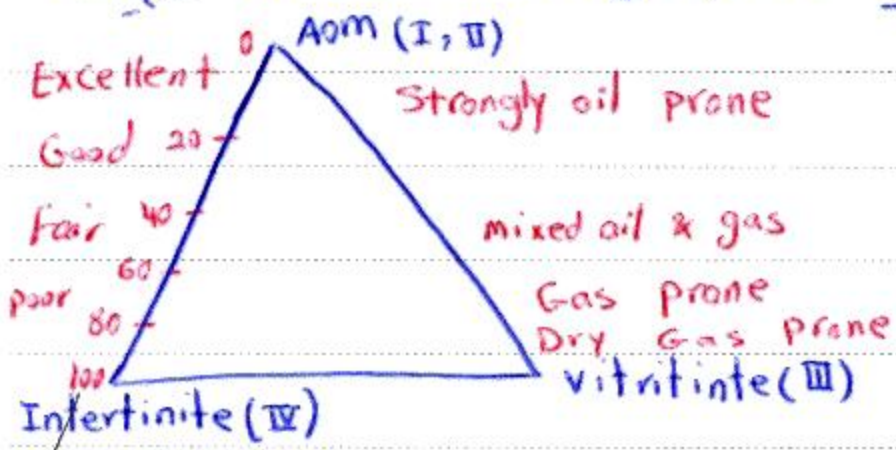 0 Aom (I, II)
Excellent
Strongly oil prone
Good 20
fair 40
mixed oil & gas
60
poor
Gas prone
80
Dry Gas prone
100
Vitritinte (III)
Intertinite (IV)